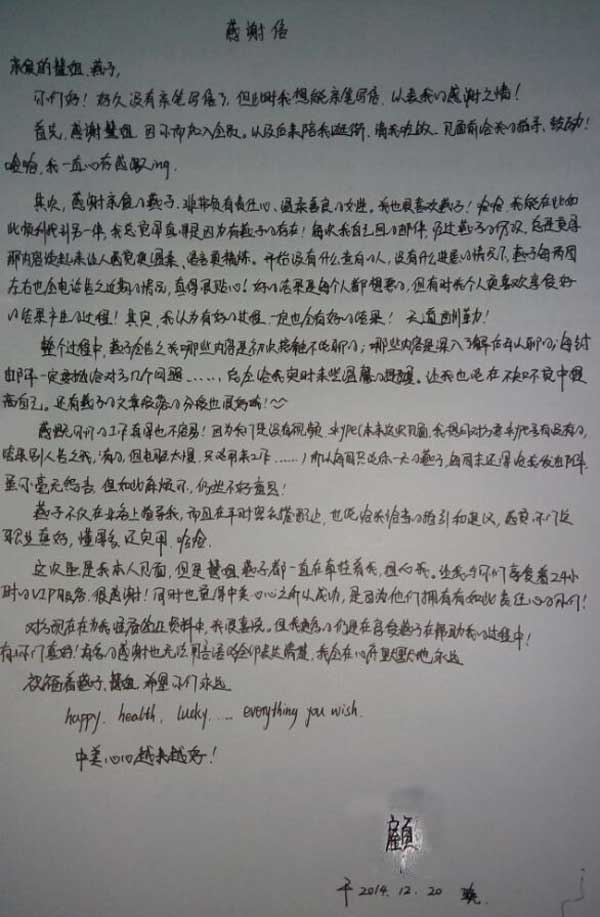 感谢信
亲爱的慧姐、燕子,
你们好! 好久没有亲笔写信了,但此时我想能亲笔写信,以表我的感谢之情!
首先,感谢慧姐,因你而加入会员。以及后来陪我逛街、请我吃饭、见面前给我的指导、鼓励!
哈哈,我一直心存感激ing.
其次,感谢亲爱的燕子、非常负有责任心、温柔善良的女性。我也很喜欢燕子!哈哈,我能在此如
此顺利找到另一伴,我总觉得真得是因为有燕子的存在!每次我自己回的邮件,经过燕子的修改,总是觉得
那内容读起来让人感觉更温柔、语言更精炼。开始没有什么查白的人,没有什么进展的情况下,燕子每两周
左右也会电话告之近期的情况,真得很贴心!好的结果是每个人都想要的,但有时我个人更喜欢享受好
的结果产生的过程!其实,我认为有好的过程一定也会有好的结果! 天道酬勤!
整个过程中,燕子会告之我哪些内容是初次接触不能聊的;哪些内容是深入了解后再聊的;每封
邮件一定要抛给对方几个问题……,总在给我实时来些温馨的提醒。让我也能在不知不觉中提
高自己。还有燕子的文章段落的分段也很好哦!
感觉你们的工作真得也不容易!因为我们是没有视频
结果别人告之我,有的,但电脑太慢,只能用来工作……)所以每周只能休一天的燕子,每周末还得给我发送邮件,
虽你毫无怨言,但如此麻烦你,仍然不好意思!
燕子不仅在业务上指导我,而且在平时穿衣搭配上,也能给我恰当的指引和建议,感觉你们这
职业真好,懂得多,还实用,哈哈.
这次虽是我本人见面,但是慧姐、燕子都一直在牵挂着我,担心我。让我与你们享受着24小
时的VIP服务,很感谢!同时也觉得中美心心之所以成功,是因为他们拥有有如此责任心的你们!
对方现在在为我准备签证资料中,我很喜悦。但我更多的仍是在享受燕子在帮助我的过程中!
有你们真好!有多的感谢也无法用言语以全部表达清楚,我会在心存里默默地永远
祝福着燕子、慧姐,希望你们永远
happy. health, lucky..... everything you wish.
中美心心越来越好!
顾
于2014.12.20 晚.